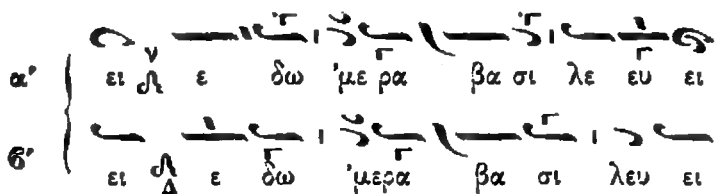 α' ει ν ε δω 'με ρα βα σι λε ευ ει
ϐ' ει Δ ε δω 'μερα βα σι λευ ει